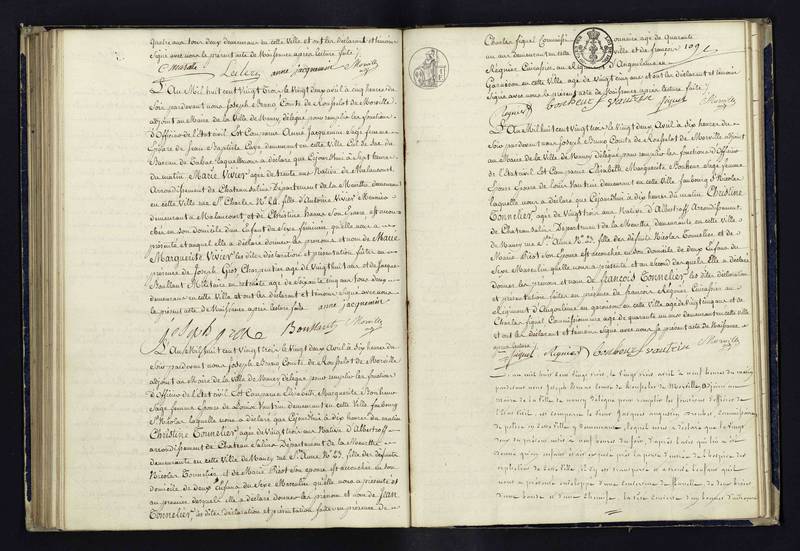 quatre ans tous deux demeurant en cette Ville et ont les déclarant et témoins
signé avec nous le présent acte de Naissance après lecture faite
Leclerc anne jacquemin Morville
L'An Mil huit cent Vingt Trois le Vingt deux avril à cinq heures du
Soir pardevant nous Joseph Brung Comte de Rousselot de Morville
adjoint au Maire de la Ville de Nancy délégué pour remplir les fonctions
d'Officier de l'Etat civil Est Comparue Anne Jacquemin Sage femme
Epouse de Jean Baptiste demeurant en cette Ville Cul de Sac du
Bureau de Tabac laquelle nous a déclaré que Cejourd'hui à Sept heures
du matin Marie Vivier agée de trente ans Native de Malaucourt
Arrondissement de Chateau Salins Département de la Meurthe demeurant
en cette Ville rue St Charles No fille d'Antoine Vivier
demeurant à Malaucourt et de Christine son Epouse, est accou-
chée en son domicile d'un Enfant du Sexe féminin, qu'elle nous a
présenté et auquel elle a déclaré donner les prénoms et nom de Marie
Marguerite Vivier les dites déclaration et présentation faites en
présence de Joseph Gros Charpentier, agé de Vingt huit ans et de Jacques
Boullant Militaire en retraite agé de Soixante cinq ans tous deux
demeurant en cette Ville et ont les déclarant et témoins signé avec nous
le présent acte de Naissance après lecture faite anne jacquemin
joseph gros Boullant Morville
L'An Mil huit cent Vingt trois le Vingt deux Avril à dix heures du
Soir pardevant nous Joseph Brung Comte de Rousselot de Morville
adjoint au Maire de la Ville de Nancy délégué pour remplir les fonctions
d'Officier de l'Etat civil Est Comparue Elisabeth Marguerite Bonheur
Sage femme Epouse de Louis Vautrin demeurant en cette Ville faubourg
St Nicolas laquelle nous a déclaré que Cejourd'hui à dix heures du matin
Christine Tonnelier agée de Vingt trois ans Native d'Albestroff
arrondissement de Chateau Salins Département de la Meurthe
demeurante en cette Ville de Nancy rue Ste Anne No 23. fille des défunts
Nicolas Tonnelier et de Marie Pirot son épouse est accouchée en son
domicile de deux Enfans du Sexe Masculin qu'elle nous a présenté et
au premier desquels elle a déclaré donner les prénom et nom de Jean
Tonnelier, les dites déclaration et présentation faites en présence de
Charles Siguel Commissionnaire agé de Quarante
un ans demeurant en cette Ville et de françois 109
Régnier Cuirassier, au Régiment d'Angoulême en
Garnison en cette Ville agé de Vingt cinq ans et ont les déclarant et témoins
Signé avec nous le présent acte de Naissance après lecture faite
Regnier bonheur f vautrin Siguel Morville
L'An Mil huit cent Vingt trois le Vingt deux Avril à dix heures du
Soir pardevant nous Joseph Brung Comte de Rousselot de Morville adjoint
au Maire de la Ville de Nancy délégué pour remplir les fonctions d'Officier
de l'Etat civil Est Comparue Elisabeth Marguerite Bonheur Sage femme
Epouse de Louis Vautrin demeurant en cette Ville faubourg St Nicolas
laquelle nous a déclaré que Cejourd'hui à dix heures du matin Christine
Tonnelier, agée de Vingt trois ans Native d'Albestroff, Arrondissement
de Chateau Salins, Département de la Meurthe, demeurante en cette Ville
de Nancy rue Ste Anne No 23, fille des défunts Nicolas Tonnelier et de
Marie Pirot son Epouse est accouchée en son domicile de deux Enfans du
Sexe Masculin qu'elle nous a présenté et au Second desquels elle a déclaré
donner les prénom et nom de françois Tonnelier, les dites déclaration
et présentation faites en présence de françois Régnier Cuirassier au
Régiment d'Angoulême en garnison en cette Ville agé de Vingt cinq ans et de
Charles Siguel Commissionnaire agé de quarante un ans demeurant en cette Ville
et ont les déclarant et témoins Signé avec nous le présent acte de Naissance
après lecture
Siguel Regnier bonheur f vautrin Morville
L'an mil huit cent vingt trois, le vingt trois avril à neuf heures du matin
pardevant nous Joseph comte de Rousselot de Morville adjoint au
maire de la ville de Nancy délégué pour remplir les fonctions d'officier de
l'Etat civil, est comparu le Sieur Jacques augustin commissaire
de police en cette ville y demeurant, lequel nous a déclaré que le vingt
deux du présent mois à neuf heures du soir, d'après l'avis qui lui a été
donné qu'un enfant était exposé près la porte d'entrée de l'hospice des
orphelins de cette ville, il s'y est transporté et a trouvé l'enfant qu'il
nous a présenté enveloppé d'une couverture de flanelle, de deux
d'une bande et d'une chemise, la tête couverte d'un bonnet d'indienne